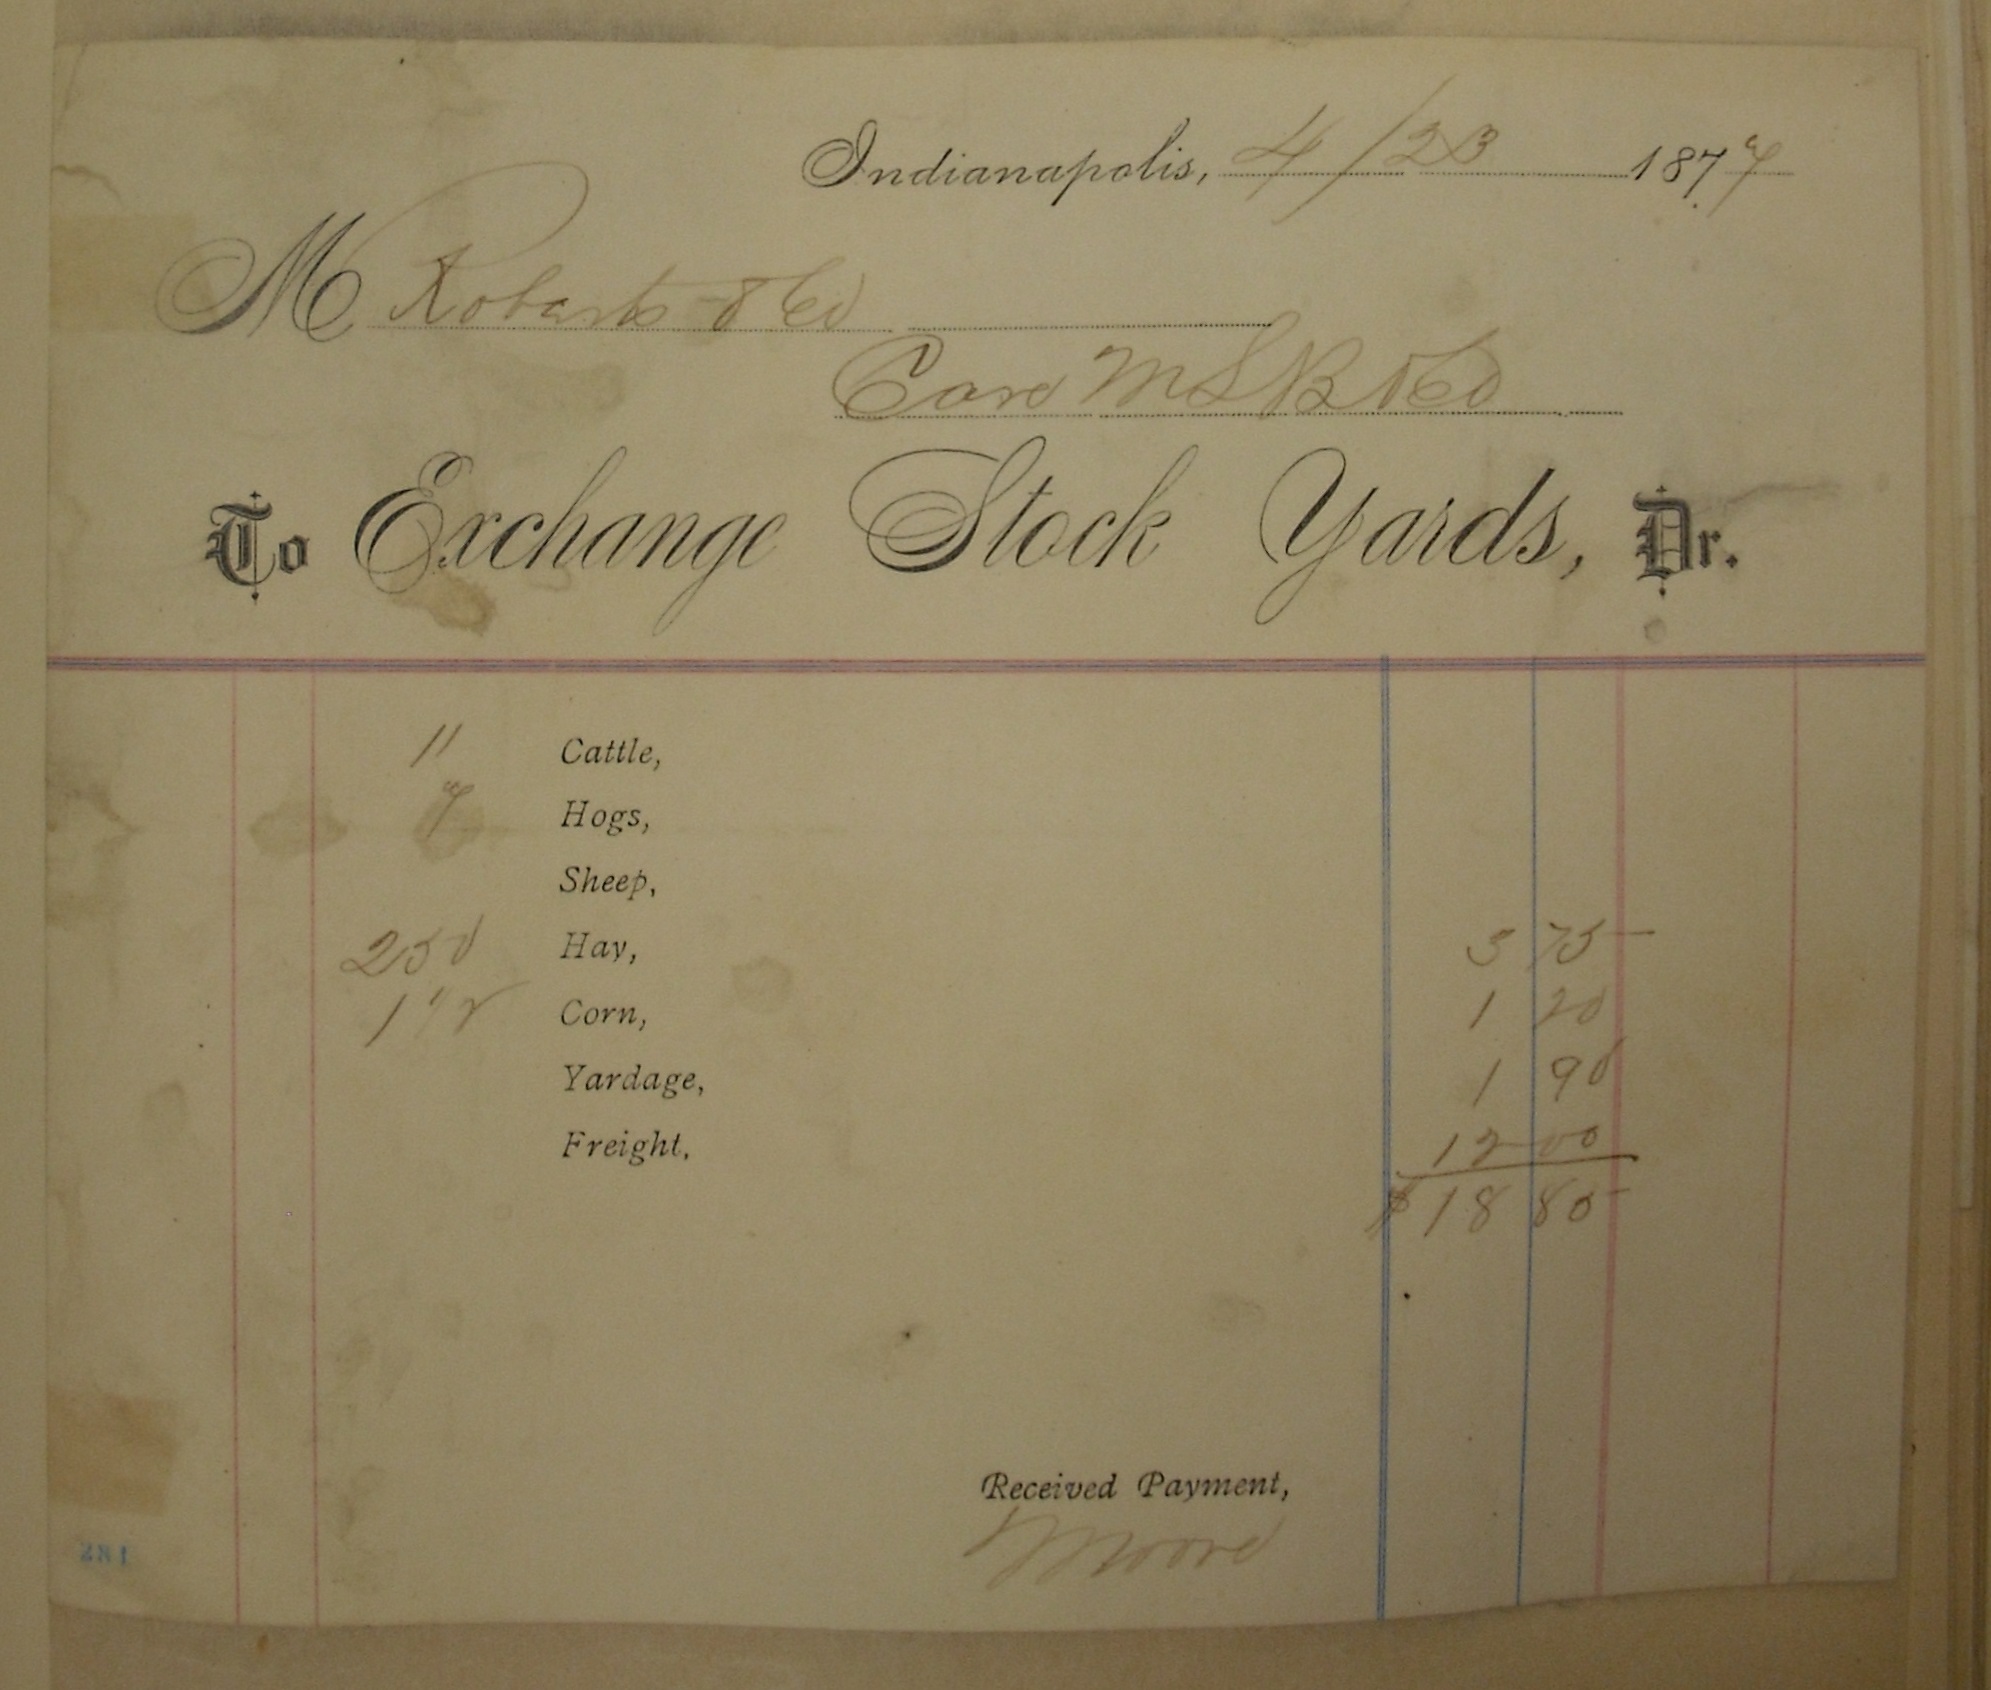 Indianapolis, 4/23 1877
M Roberts & Co
Care M S B & Co
To Exchange Stock Yards, Dr.
11 Cattle,
7 Hogs,
Sheep,
250 Hay, 3 75
1 1/2 Corn, 1 20
Yardage, 1 90
Freight, 12 00
$18 85
Received Payment,
Moore
281